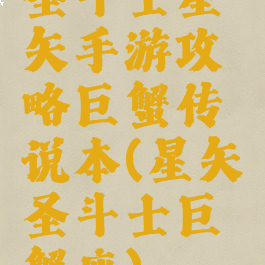 圣斗士星
矢手游攻
略巨蟹传
说本(星矢
圣斗士巨
蟹座)